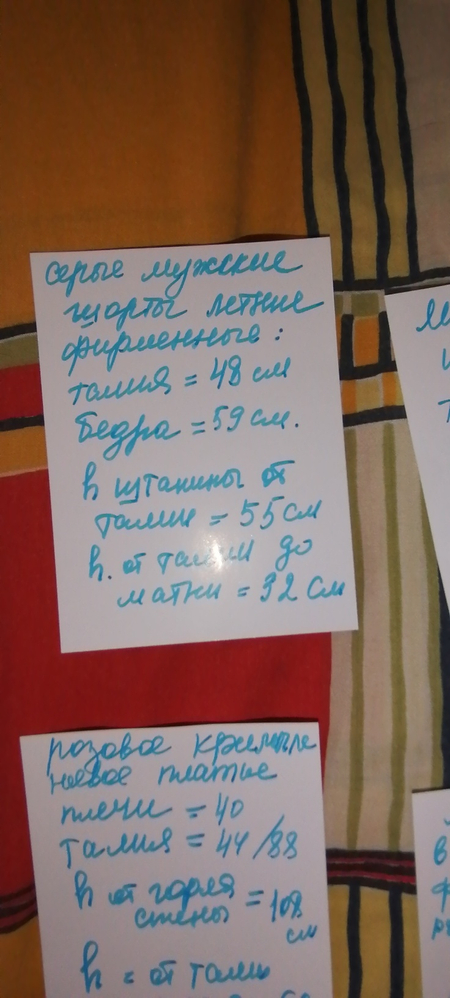 серые мужские
шорты летние
фирменные:
талия = 48 см
бедра = 59 см.
h штанины от
талии = 55 см
h. от талии до
матни = 32 см
розовое кримпле
новое платье
плечи = 40
талия = 44/88
h от горла
спены = 108
см
h = от талии